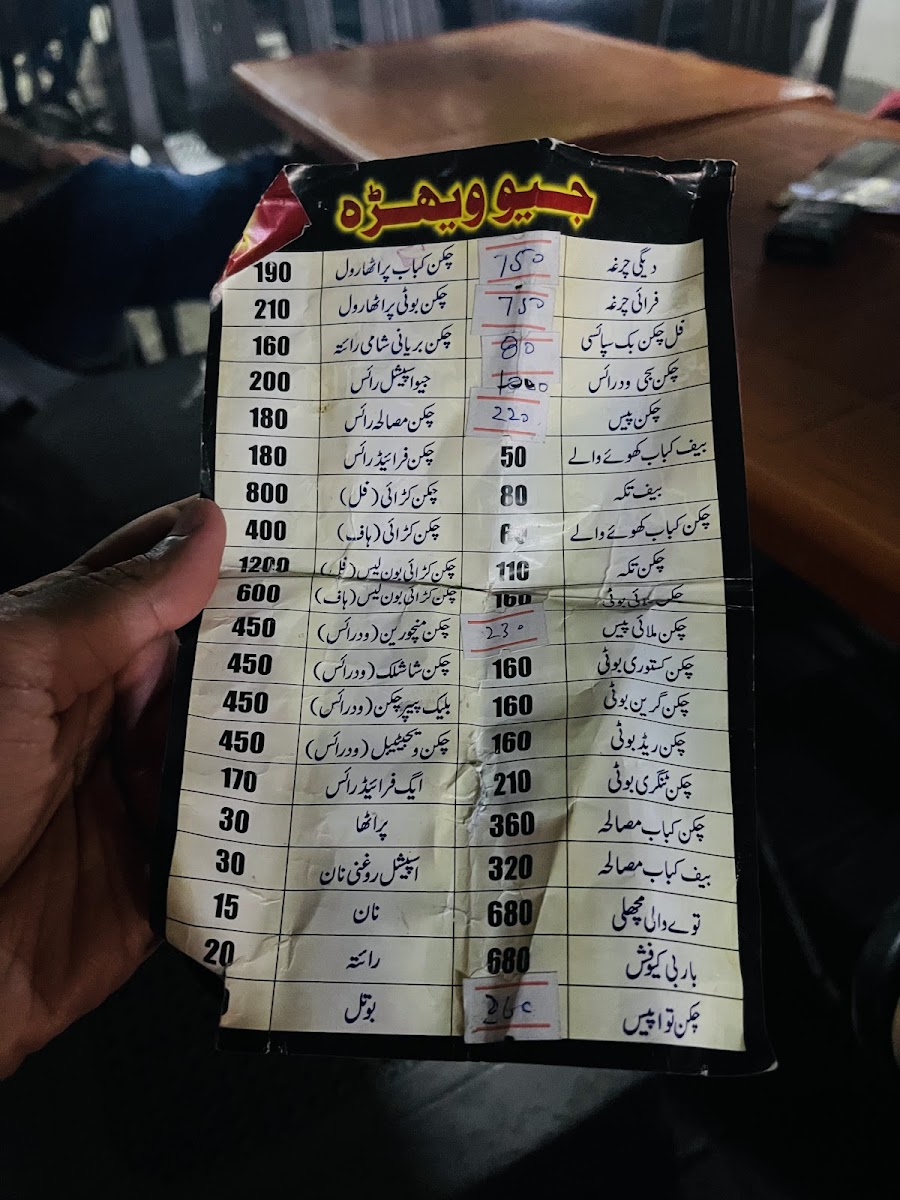 جیو ویہڑہ
دیگی چرغہ 750 چکن کباب پراٹھا رول 190
فرائی چرغہ 750 چکن بوٹی پراٹھا رول 210
فل چکن بک سپائسی 80 چکن بریانی شامی رائتہ 160
چکن ودرائس جیو اسپیشل رائس 200
چکن پیس 220 چکن مصالحہ رائس 180
بیف کباب کھوئے والے 50 چکن فرائیڈ رائس 180
بیف تکہ 80 چکن کڑائی (فل) 800
چکن کباب کھوئے والے چکن کڑائی (ہاف) 400
چکن تکہ 110 چکن کڑائی بون لیس (فل) 1200
چکن ملائی بوٹی 160 چکن کڑائی بون لیس (ہاف) 600
چکن ملائی پیس 230 چکن منچورین (ودرائس) 450
چکن کستوری بوٹی 160 چکن شاشلک (ودرائس) 450
چکن گرین بوٹی 160 بلیک پیپر چکن (ودرائس) 450
چکن ریڈ بوٹی 160 چکن ویجیٹیبل (ودرائس) 450
چکن ٹنگری بوٹی 210 ایگ فرائیڈ رائس 170
چکن کباب مصالحہ 360 پراٹھا 30
بیف کباب مصالحہ 320 اسپیشل روغنی نان 30
توے والی مچھلی 680 نان 15
باربی کیو فش 680 رائتہ 20
چکن توا پیس 260 بوتل